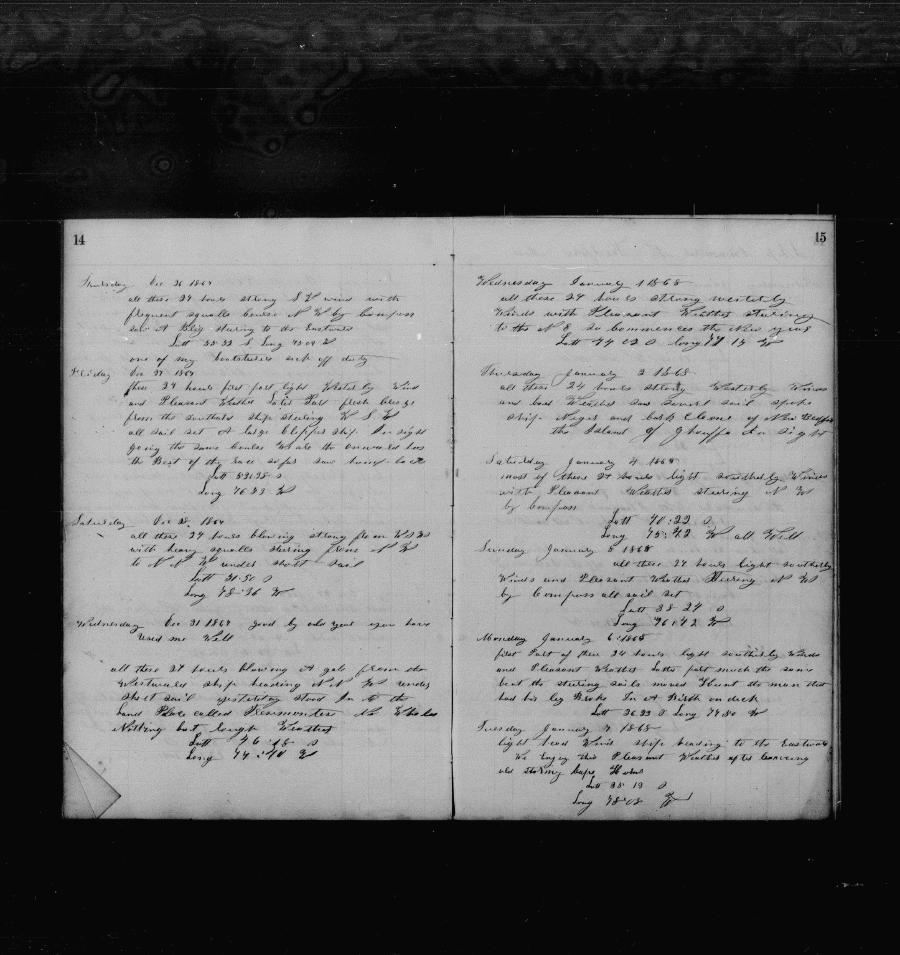 14
Thursday Dec 26 1867
all these 24 hours strong S W wind with
frequent squalls Course N W by Compass
saw A Brig stering to the Eastward
Latt S Long W
one of my boatsteerers sick off duty
Friday Dec 27 1867
these 24 hours first part light Westerly Wind
and Pleasant Weather Later Part fresh
from the southard ship steering W S W
all sail set A large Clipper ship In sight
going the same Course While the onward has
the Best of the race so far saw
Latt S
Long 76 33 W
Saturday Dec 28 1867
all these 24 hours blowing strong from
with heavy squalls stering from N W
to N N W under short sail
Latt 51:50 S
Long 78:36 W
Wednesday Dec 31 1867 good by old year you have
used me Well
all these 24 hours blowing A gale from the
Westward ship heading N N W under
short sail yesterday stood In to the
land Place called No Whales
Nothing but tough Weather
Latt 46:18 S
Long 74:40 W
15
Wednesday January 1 1868
all these 24 hours strong westerly
Winds with Pleasant Weather stering
to the N E so Commences the New year
Latt 44 02 S Long 77 14 W
Thursday January 2 1868
all these 24 hours strong Westerly Winds
and bad Weather saw several sail spoke
ship Niger and bark Cleone of New Bedford
the Island of In sight
Saturday January 4 1868
most of these 24 hours light southerly Winds
with Pleasant Weather steering N W
by Compass
Latt 40:22 S
Long 75:42 W all Well
Sunday January 5 1868
all these 24 hours light southerly
Winds and Pleasant Weather Steering N W
by Compass all sail set
Latt 38 24 S
Long 76:42 W
Monday January 6:1868
first Part of these 24 hours light southerly Winds
and Pleasant Weather Latter part much the same
bent the stering sails moved the man that
had his leg Broke In A Birth on deck
Latt 36 33 S Long 74 80 W
Tuesday January 7 1868
light head Wind ship heading to the Eastward
We Enjoy this Pleasant Weather after leaveing
old stormy Cape Horn
Latt 35 19 S
Long 78:08 W